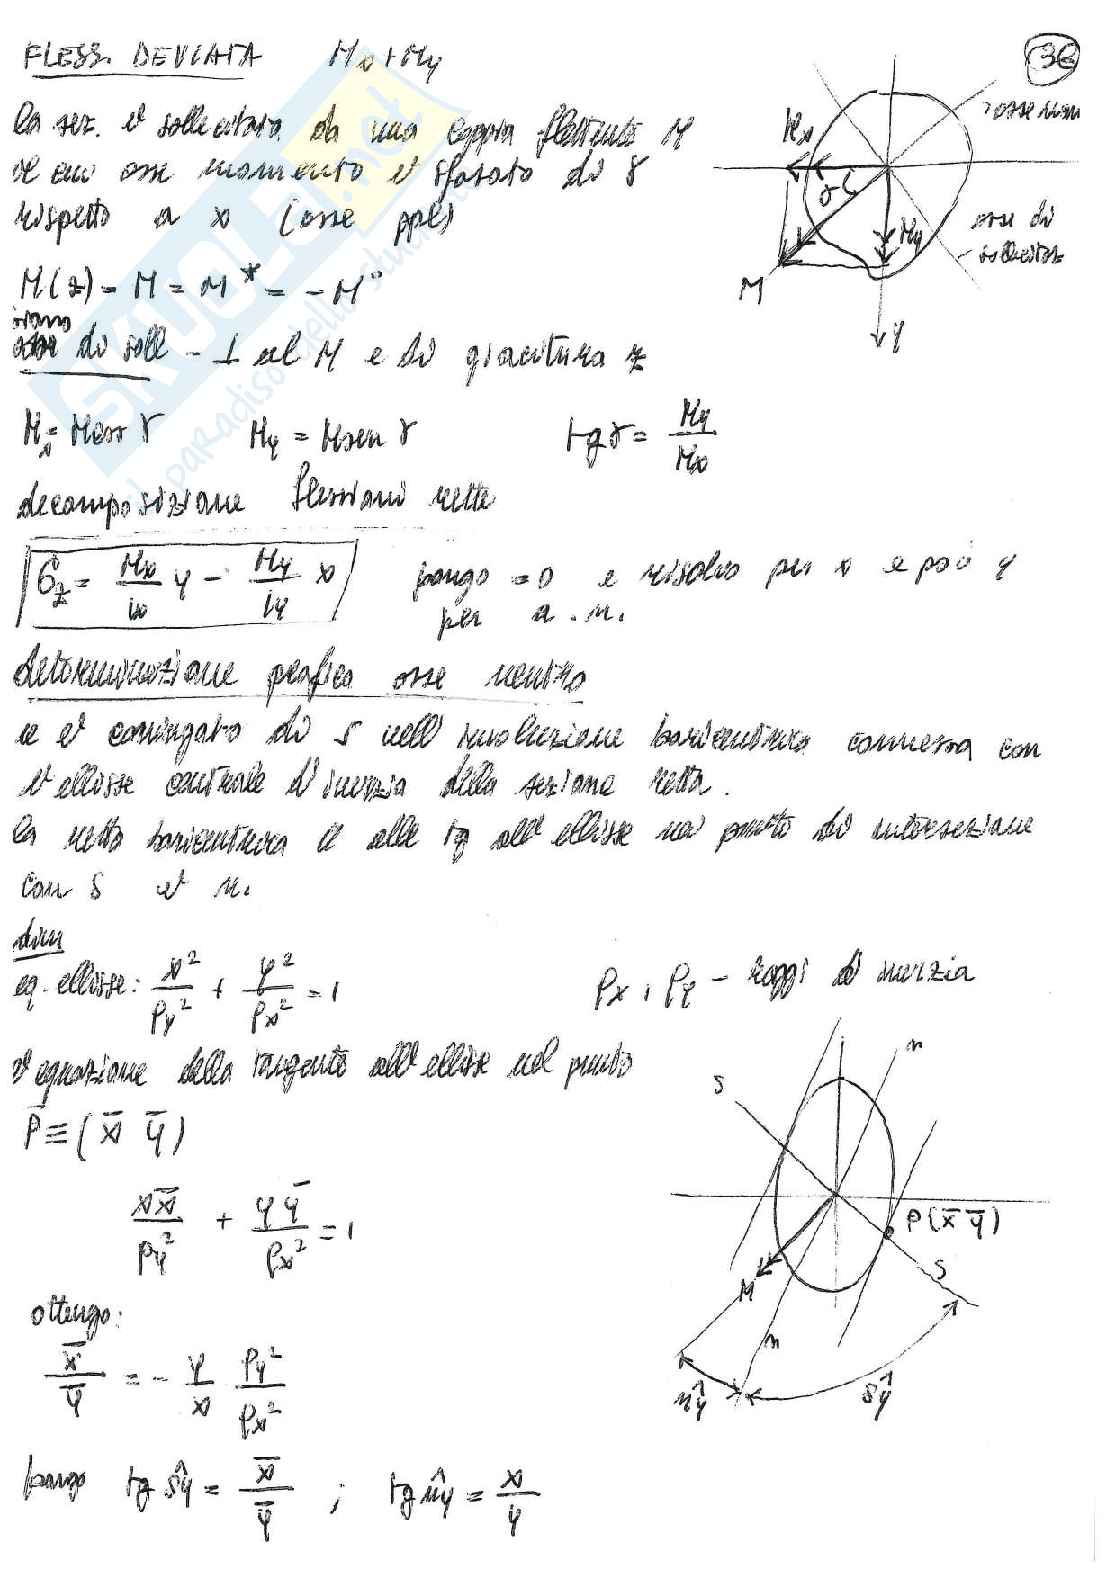 FLESS. DEVIATA Mx + My
36
la sez. è sollecitata da una coppia flettente M
il cui asse momento è sfasato di γ
rispetto a x (asse pple)
M(z) = M = M* = -M°
piano di soll - ⊥ al M e di giacitura z
Mx = M cos γ My = M sen γ tg γ = My/Mx
decomposizione flessioni rette
σz = Mx/Ix y - My/Iy x pongo = 0 e risolvo per x e poi y
per a.n.
determinazione grafica asse neutro
n è coniugato di s nell'involuzione baricentrica connessa con
l'ellisse centrale d'inerzia della sezione retta.
la retta baricentrica // alle tg all'ellisse nei punti di intersezione
con s è n.
dim
eq. ellisse: x²/ρy² + y²/ρx² = 1 ρx, ρy - raggi di inerzia
l'equazione della tangente all'ellisse nel punto
P̄ ≡ (x̄ ȳ)
x x̄/ρy² + y ȳ/ρx² = 1
ottengo:
x̄/ȳ = - y/x ρy²/ρx²
pongo tg sŷ = x̄/ȳ ; tg nŷ = x/y
Mx
γ
My
M
y
asse di
sollecitaz
n
s
P(x̄ ȳ)
s
M
n
nŷ
sŷ
SKUOLA.net
il paradiso dello stu